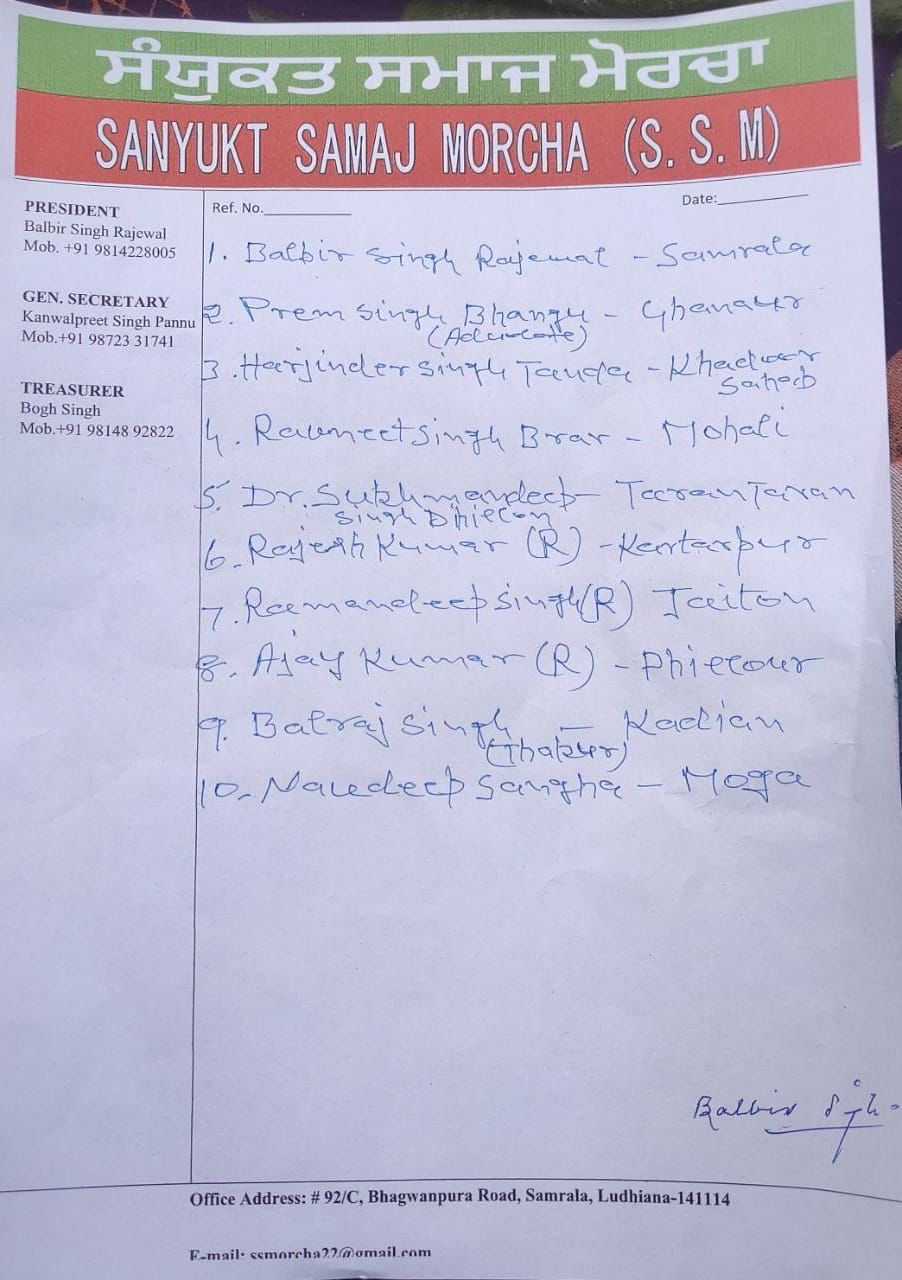 ਸੰਯੁਕਤ ਸਮਾਜ ਮੋਰਚਾ
SANYUKT SAMAJ MORCHA (S. S. M)
PRESIDENT
Balbir Singh Rajewal
Mob. +91 9814228005
GEN. SECRETARY
Kanwalpreet Singh Pannu
Mob.+91 98723 31741
TREASURER
Bogh Singh
Mob.+91 98148 92822
Ref. No.__________
Date:__________
1. Balbir Singh Rajewal - Samrala
2. Prem Singh Bhangu - Ghanaur
(Advocate)
3. Harjinder Singh Tanda - Khadoor
Saheb
4. Ravneet Singh Brar - Mohali
5. Dr. Sukhmandeep - Taran Taran
Singh Dhillon
6. Rajesh Kumar (R) - Kartarpur
7. Ramandeep Singh (R) Jaiton
8. Ajay Kumar (R) - Phillour
9. Balraj Singh - Kadian
(Thakur)
10. Navdeep Sangha - Moga
Balbir Sgh
Office Address: # 92/C, Bhagwanpura Road, Samrala, Ludhiana-141114
E-mail: ssmorcha22@gmail.com